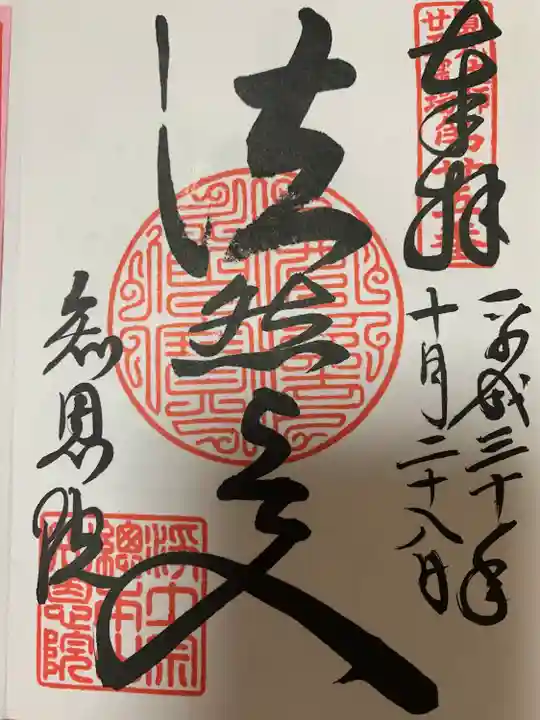 奉拝
平成三十年
十月二十八日
法然上人
知恩院
浄土宗
總本山
知恩院